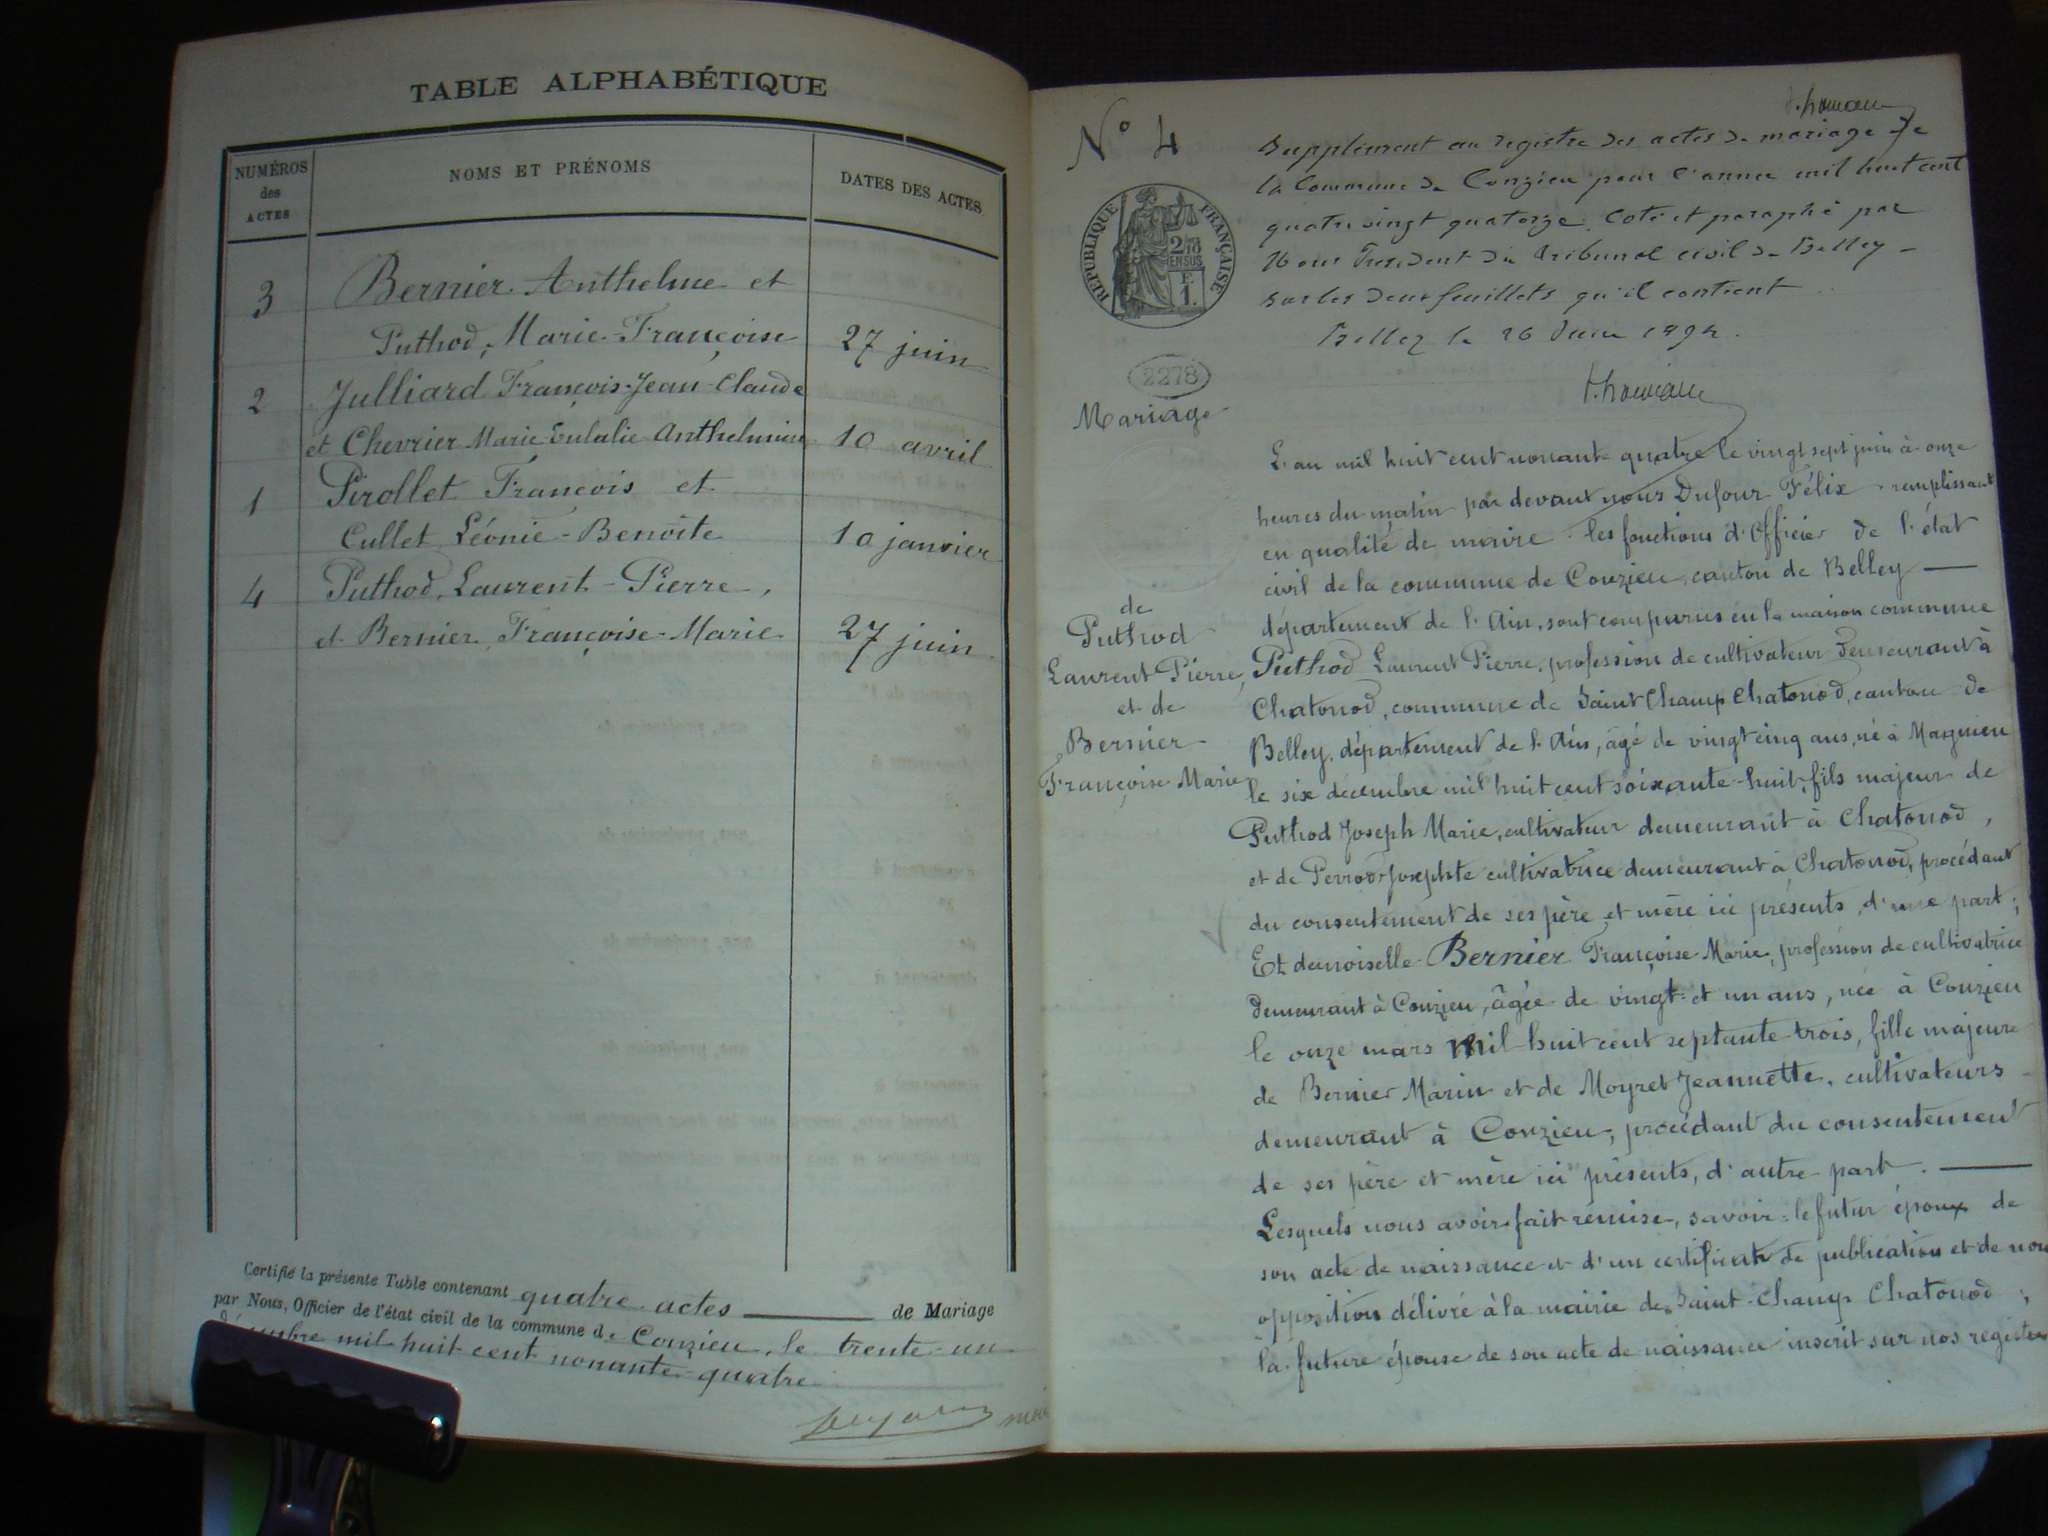 TABLE ALPHABÉTIQUE
NUMÉROS
des
ACTES
NOMS ET PRÉNOMS
DATES DES ACTES
3 Bernier Anthelme et
Puthod, Marie-Françoise 27 juin
2 Julliard François-Jean-Claude
et Chevrier Marie Eulalie Anthelmine 10 avril
1 Pirollet François et
Cullet Léonie-Benoîte 10 janvier
4 Puthod, Laurent-Pierre,
et Bernier Françoise-Marie 27 juin
Certifié la présente Table contenant quatre actes de Mariage
par Nous, Officier de l'état civil de la commune de Conzieu, le trente-un
décembre mil-huit cent nonante-quatre
N° 4
Supplément au registre des actes de mariage de
la Commune de Conzieu pour l'année mil huit cent
quatre vingt quatorze. Coté et paraphé par
Nous Président du Tribunal civil de Belley
sur les deux feuillets qu'il contient
Belley le 26 Juin 1894.
RÉPUBLIQUE FRANÇAISE
2/10
EN SUS
F.
1.
2278
Mariage
de
Puthod
Laurent Pierre,
et de
Bernier
Françoise Marie
L'an mil huit cent nonante quatre le vingt sept juin à onze
heures du matin par devant nous Dufour Félix remplissant
en qualité de maire les fonctions d'Officier de l'état
civil de la commune de Conzieu, canton de Belley
département de l'Ain, sont comparus en la maison commune
Puthod Laurent Pierre, profession de cultivateur demeurant à
Chatonod, commune de Saint Champ Chatonod, canton de
Belley, département de l'Ain, âgé de vingt cinq ans, né à Magnieu
le six décembre mil huit cent soixante-huit, fils majeur de
Puthod Joseph Marie, cultivateur demeurant à Chatonod,
et de Perrod Josephte cultivatrice demeurant à Chatonod, procédant
du consentement de ses père et mère ici présents, d'une part;
Et demoiselle Bernier Françoise Marie, profession de cultivatrice
demeurant à Conzieu, âgée de vingt-et un ans, née à Conzieu
le onze mars mil huit cent septante-trois, fille majeure
de Bernier Marin et de Moyret Jeannette, cultivateurs
demeurant à Conzieu, procédant du consentement
de ses père et mère ici présents, d'autre part.
Lesquels nous avoir fait remise, savoir: le futur époux de
son acte de naissance et d'un certificat de publication et de non
opposition délivré à la mairie de Saint-Champ Chatonod;
la future épouse de son acte de naissance inscrit sur nos registres